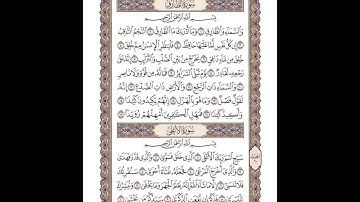 سُورَةُ الطَّارِقِ
بِسْمِ اللَّهِ الرَّحْمَٰنِ الرَّحِيمِ
وَالسَّمَاءِ وَالطَّارِقِ ١ وَمَا أَدْرَاكَ مَا الطَّارِقُ ٢ النَّجْمُ الثَّاقِبُ
٣ إِن كُلُّ نَفْسٍ لَّمَّا عَلَيْهَا حَافِظٌ ٤ فَلْيَنظُرِ الْإِنسَانُ مِمَّ خُلِقَ
٥ خُلِقَ مِن مَّاءٍ دَافِقٍ ٦ يَخْرُجُ مِن بَيْنِ الصُّلْبِ وَالتَّرَائِبِ ٧ إِنَّهُ عَلَىٰ
رَجْعِهِ لَقَادِرٌ ٨ يَوْمَ تُبْلَى السَّرَائِرُ ٩ فَمَا لَهُ مِن قُوَّةٍ وَلَا نَاصِرٍ
١٠ وَالسَّمَاءِ ذَاتِ الرَّجْعِ ١١ وَالْأَرْضِ ذَاتِ الصَّدْعِ ١٢ إِنَّهُ
لَقَوْلٌ فَصْلٌ ١٣ وَمَا هُوَ بِالْهَزْلِ ١٤ إِنَّهُمْ يَكِيدُونَ كَيْدًا ١٥
وَأَكِيدُ كَيْدًا ١٦ فَمَهِّلِ الْكَافِرِينَ أَمْهِلْهُمْ رُوَيْدًا ١٧
سُورَةُ الْأَعْلَىٰ
بِسْمِ اللَّهِ الرَّحْمَٰنِ الرَّحِيمِ
سَبِّحِ اسْمَ رَبِّكَ الْأَعْلَى ١ الَّذِي خَلَقَ فَسَوَّىٰ ٢ وَالَّذِي قَدَّرَ فَهَدَىٰ
٣ وَالَّذِي أَخْرَجَ الْمَرْعَىٰ ٤ فَجَعَلَهُ غُثَاءً أَحْوَىٰ ٥ سَنُقْرِئُكَ
فَلَا تَنسَىٰ ٦ إِلَّا مَا شَاءَ اللَّهُ إِنَّهُ يَعْلَمُ الْجَهْرَ وَمَا يَخْفَىٰ ٧ وَنُيَسِّرُكَ
لِلْيُسْرَىٰ ٨ فَذَكِّرْ إِن نَّفَعَتِ الذِّكْرَىٰ ٩ سَيَذَّكَّرُ مَن يَخْشَىٰ ١٠